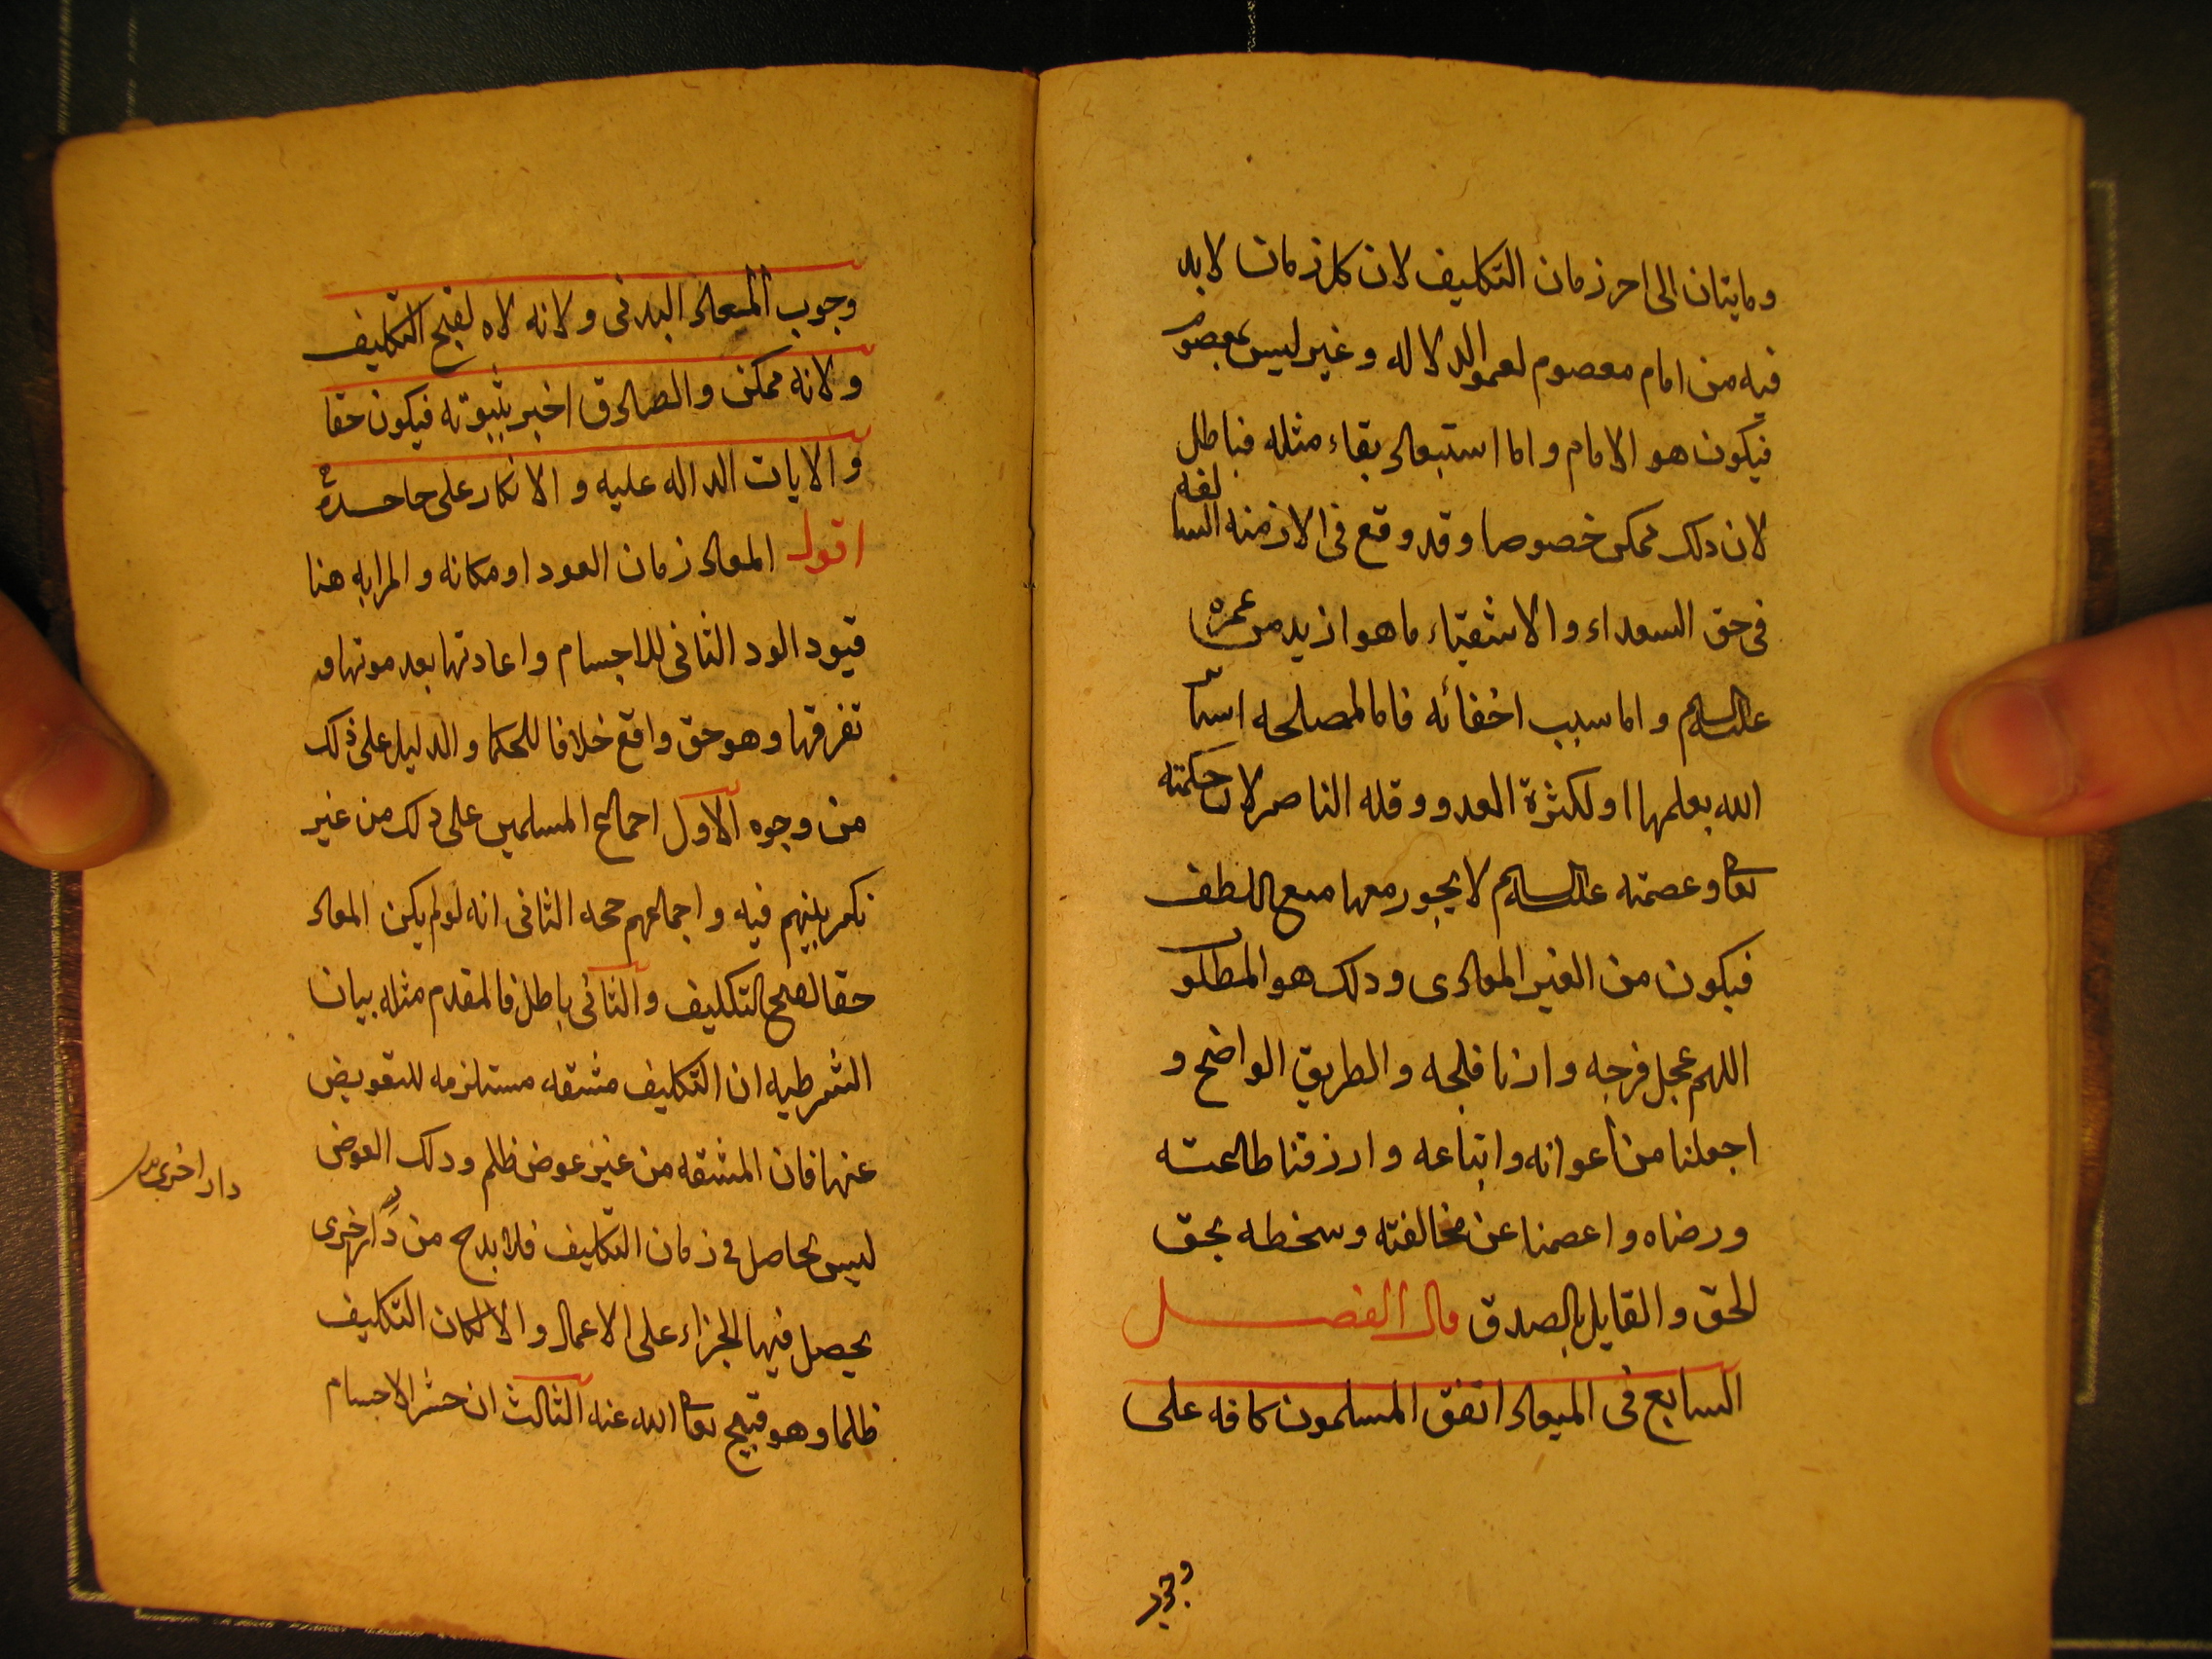 وما يتان الى احر زمان التكليف لان كل زمان لا بد
فيه من امام معصوم لعموالدلاله و غير ليس بمعصو
فيكون هو الامام و اما استبعاد بقاء مثله فباطل
لان دلك ممكن خصوصا وقد وقع فى الازمنه السا
لفه
فى حق السعداء و الاشقياء ما هو ازيد من عمره
عليه السلم و اما سبب اخفائه فاما لمصلحه استا
الله بعلمها او لكثرة العدو و قله الناصر لان حكمته
تعا و عصمته عليه السلم لا يجور معها منع اللطف
فيكون من الغير المعادى و دلك هو المطلو
اللهم عجل فرجه و ارنا فلجه و الطريق الواضح و
اجعلنا من اعوانه و اتباعه و ارزقنا طاعته
و رضاه و اعصمنا عن مخالفته و سخطه بحق
الحق و القايل بالصدق قال الفصل
السابع فى الميعاد اتفق المسلمون كافه على
وجوب
وجوب المعاد البدنى و لانه لاه لقبح التكليف
و لانه ممكن و الصادق اخبر بثبوته فيكون حقا
و الايات الداله عليه و الانكار على جاحده
اقول المعاد زمان العود او مكانه و المرابه هنا
قيود الود الثانى للاجسام و اعادتها بعد موتها و
تفرقها و هو حق واقع خلافا للحكما و الدليل على ذلك
من وجوه الاول اجماع المسلمين على دلك من غير
نكير بينهم فيه و اجماعهم حجه الثانى انه لو لم يكن المعاد
حقا لقبح التكليف و الثانى باطل فالمقدم مثله بيان
الشرطيه ان التكليف مشقه مستلزمه للتعويض
عنها فان المشقه من غير عوض ظلم و دلك العوض
ليس بحاصل فى زمان التكليف فلا بد ح من دار اخرى
دار اخرى
يحصل فيها الجزاء على الاعمال و الا لكان التكليف
ظلما و هو قبيح تعا الله عنه الثالث ان حشر الاجسام